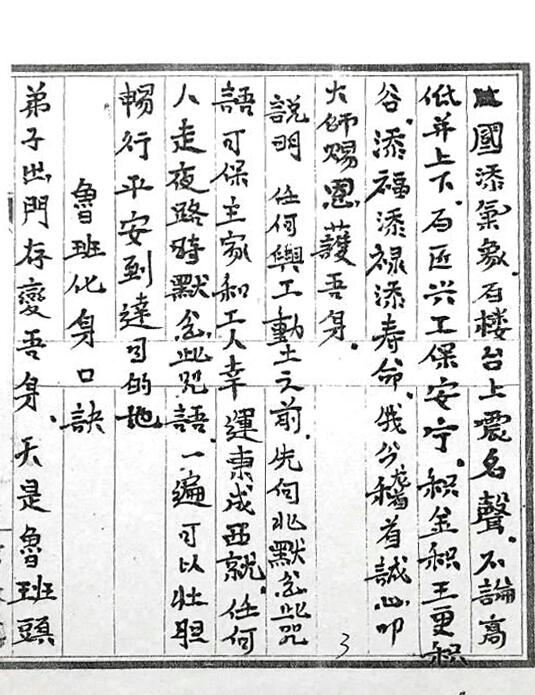 國添氣象.石楼台上震名聲.不論高
低并上下.石匠兴工保安宁.积金积玉更积
谷.添福添禄添寿命.俄兮稽首誠心叩
大師赐恩護吾身.
說明 任何興工動土之前.先向北默念此咒
語可保主家和工人幸運東成西就.任何
人走夜路時默念此咒語.一遍可以壮胆
暢行平安到達目的地
魯班化身口訣
弟子出門存變吾身.天是魯班頭
3